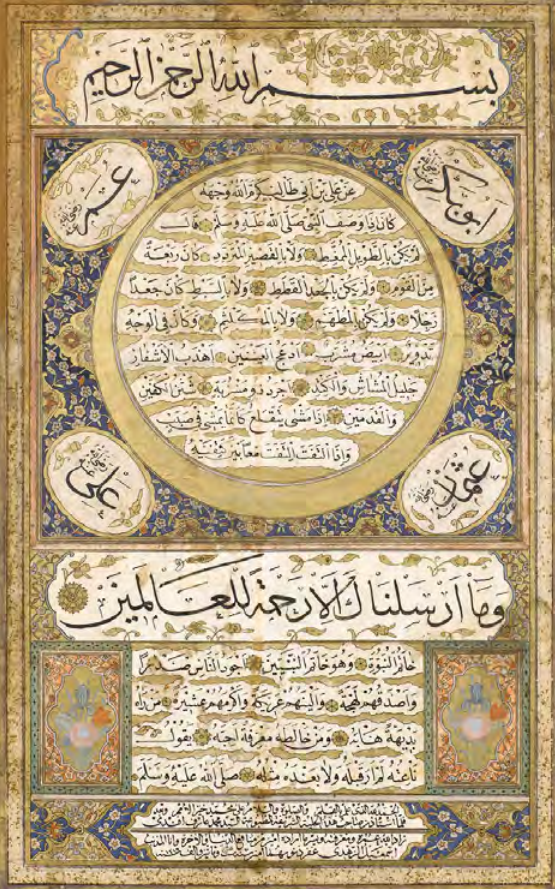 بسم الله الرحمن الرحيم
ابو بكر رضي الله عنه
عمر رضي الله عنه
عن علي بن ابي طالب كرم الله وجهه
كان اذا وصف النبي صلى الله عليه وسلم قال
لم يكن بالطويل الممغط ولا بالقصير المتردد كان ربعة
من القوم ولم يكن بالجعد القطط ولا بالسبط كان جعدا
رجلا ولم يكن بالمطهم ولا بالمكلثم وكان في الوجه
تدوير ابيض مشرب ادعج العينين اهدب الاشفار
جليل المشاش والكتد اجرد ذو مسربة شثن الكفين
والقدمين اذا مشى يتقلع كانما يمشي في صبب
واذا التفت التفت معا بين كتفيه
عثمان رضي الله عنه
علي رضي الله عنه
وما ارسلناك الا رحمة للعالمين
خاتم النبوة وهو خاتم النبيين اجود الناس صدرا
واصدقهم لهجة والينهم عريكة واكرمهم عشيرة من راه
بديهة هابه ومن خالطه معرفة احبه يقول
ناعته لم ار قبله ولا بعده مثله صلى الله عليه وسلم